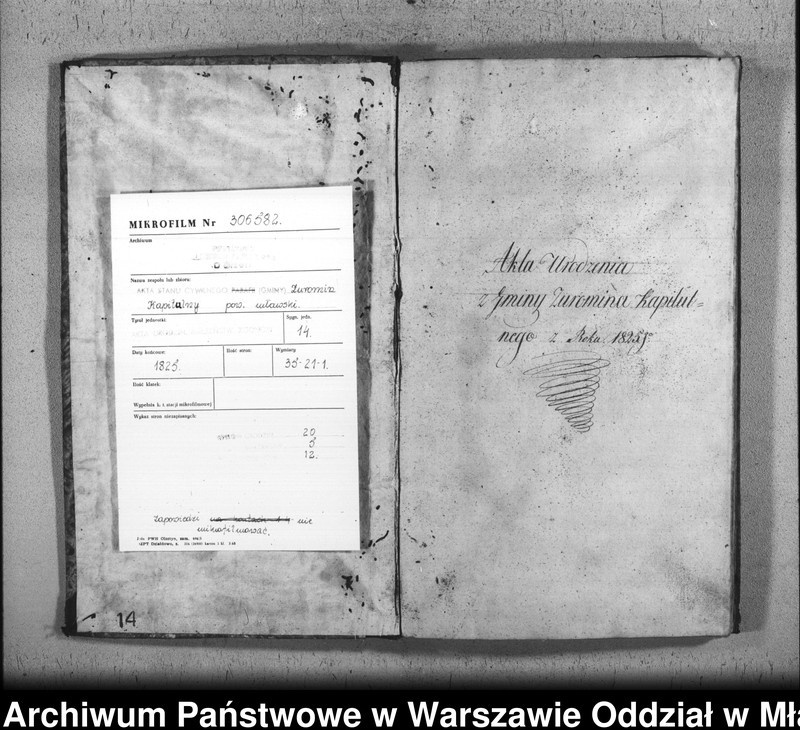 MIKROFILM Nr 306582.
Archiwum
Nazwa zespołu lub zbioru:
AKTA STANU CYWILNEGO (GMINY) Żuromin
Kapitalny pow. mławski.
Tytuł jednostki:
Sygn. jedn.
14.
Daty końcowe:
1825.
Ilość stron:
Wymiary
35-21-1.
Ilość klatek:
Wypełnia k. z stacji mikrofilmowej
Wykaz stron niezapisanych:
20
5
12.
zapowiedzi nie
mikrofilmować.
14
Akta Urodzenia
z Gminy Żuromina Kapitul=
nego z Roku 1825go
Archiwum Państwowe w Warszawie Oddział w Mła